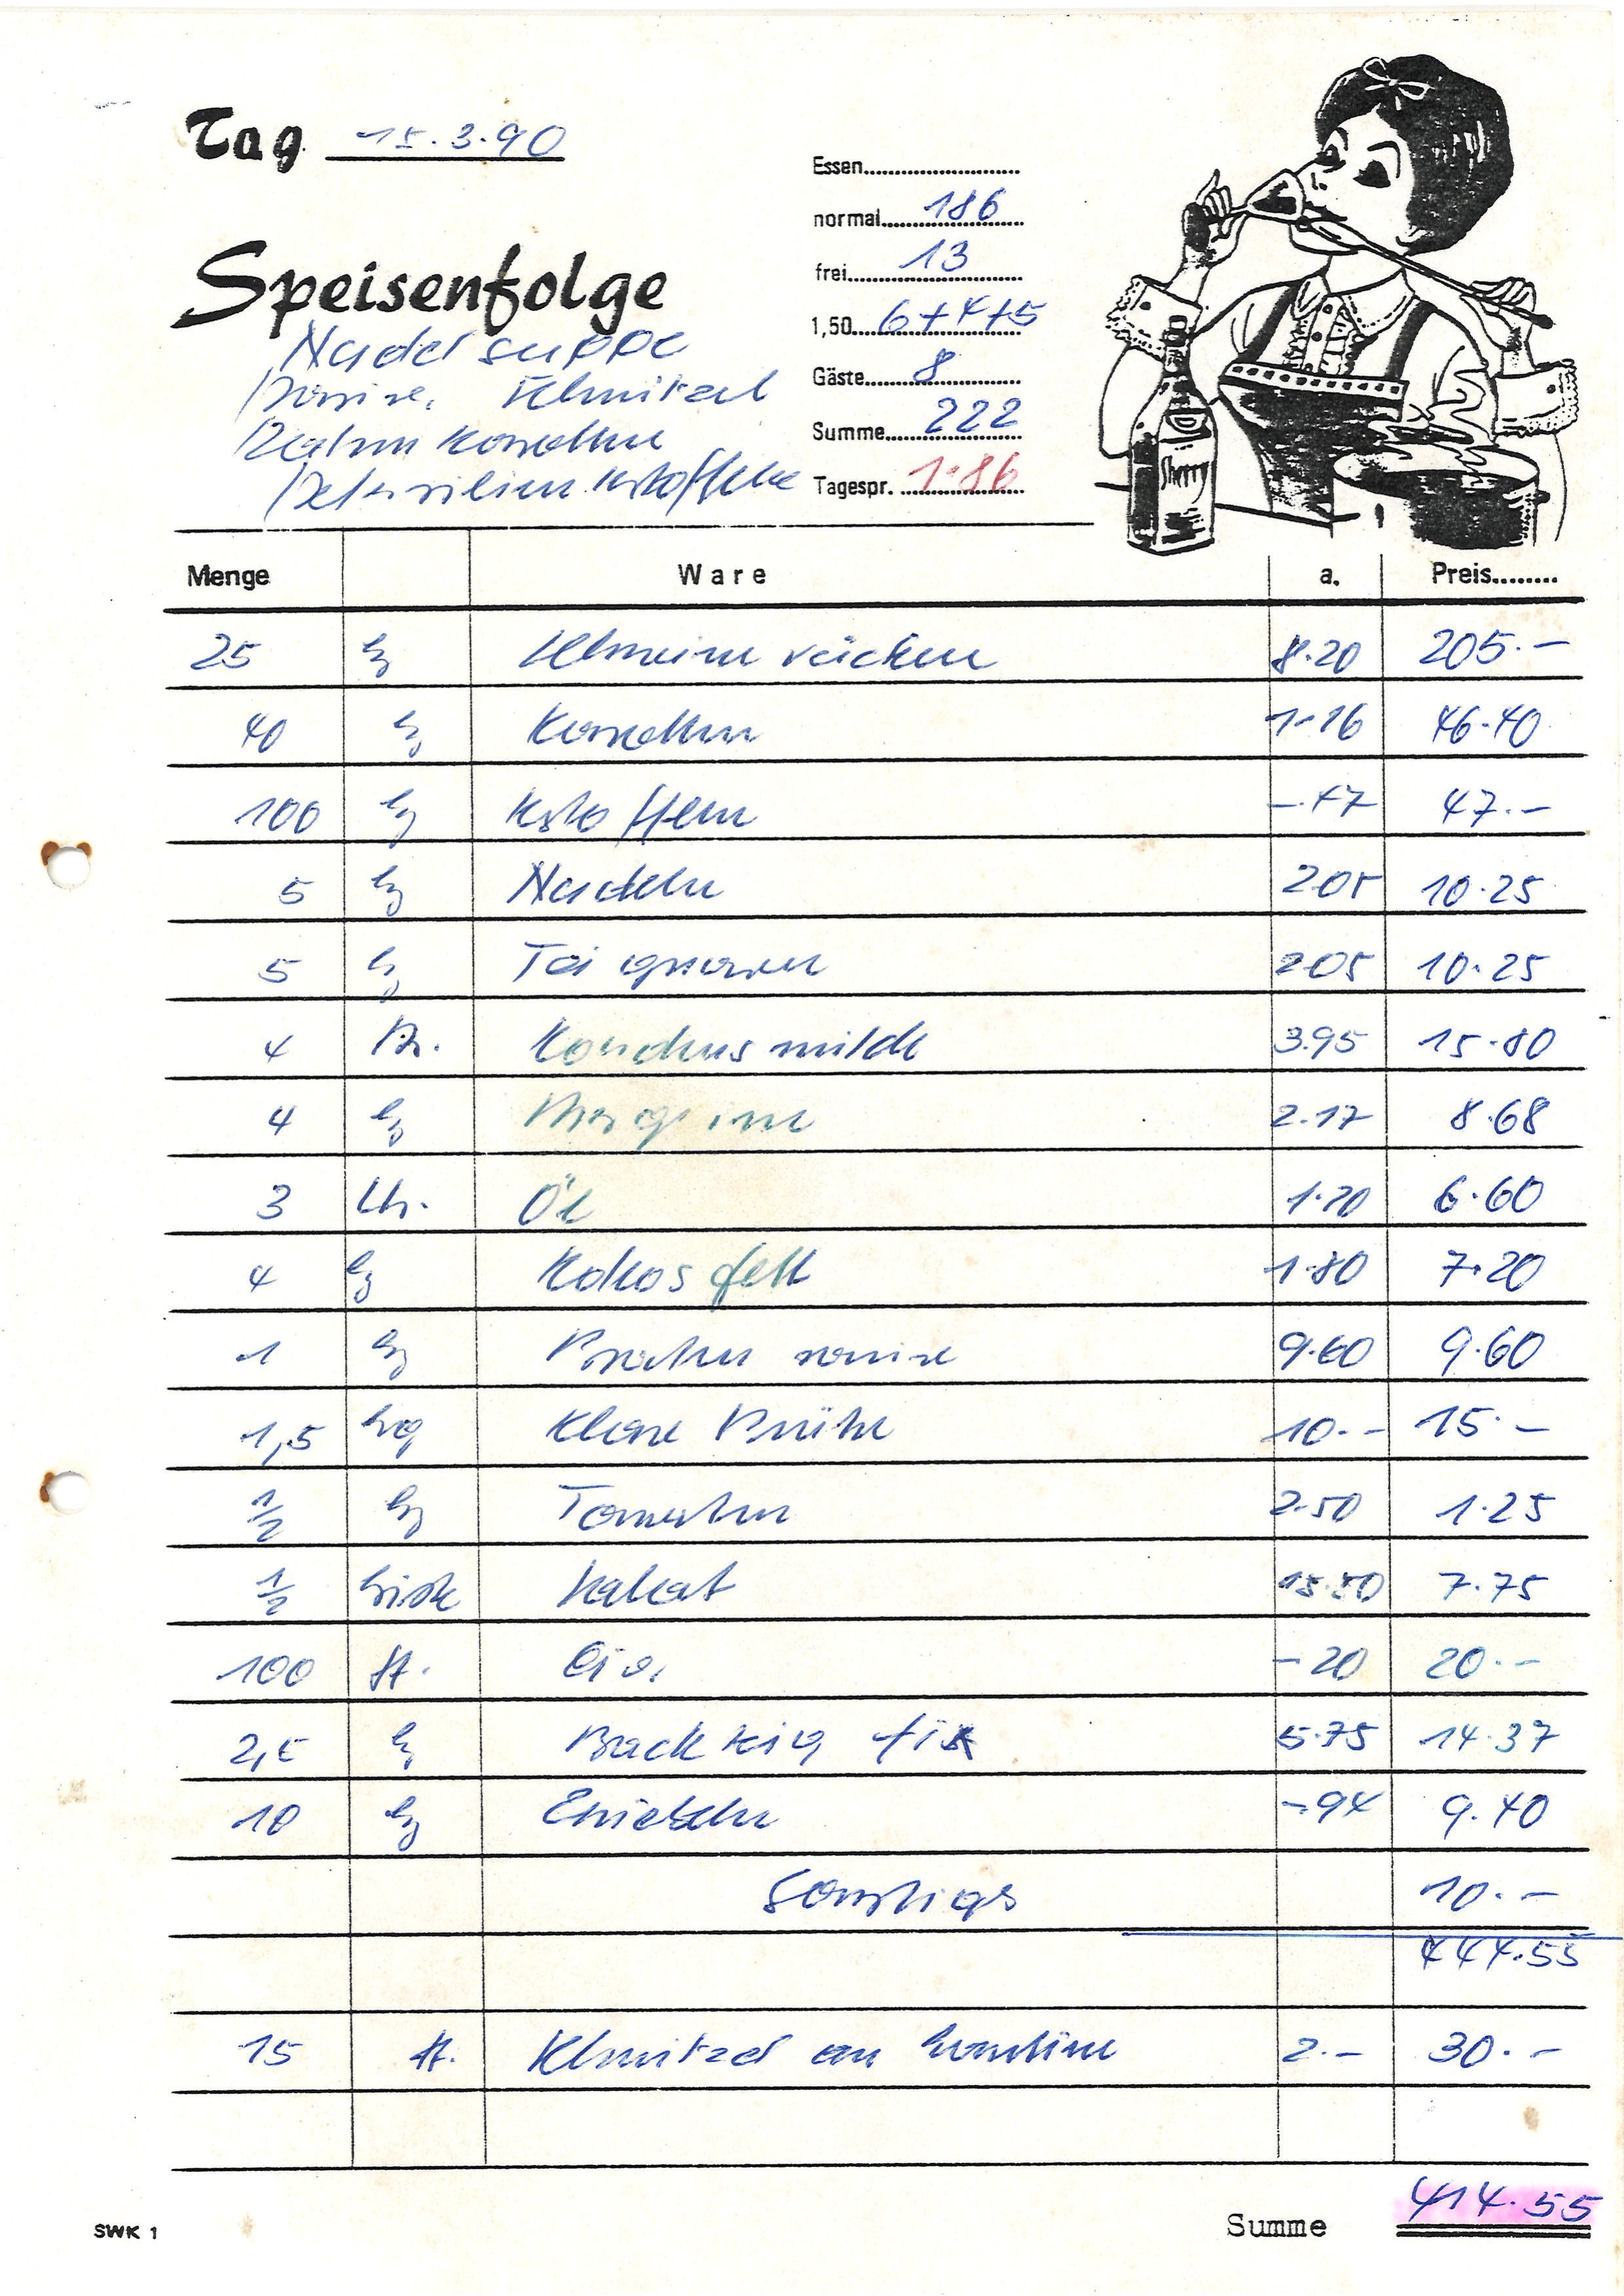 Tag 15.3.90
Essen
normal 186
frei 13
1,50 6+4+5
Gäste 8
Summe 222
Tagespr. 1.86
Speisenfolge
Nudelsuppe
Schnitzel
Rahm Karotten
Petersilien Kstoffeln
Sherry
Menge Ware a. Preis
25 kg Schweinerücken 8.20 205.-
40 kg Karotten 1.16 46.40
100 kg Kstoffeln -.47 47.-
5 kg Nudeln 205 10.25
5 kg Teigwaren 205 10.25
4 Kondensmilch 3.95 15.80
4 kg Margarine 2.17 8.68
3 Ltr. Öl 6.60
4 kg Kokosfett 1.80 7.20
1 kg Bratensauce 9.60 9.60
1,5 kg Klare Brühe 10.- 15.-
1/2 kg Tomaten 2.50 1.25
1/2 Kiste 15.50 7.75
100 St. Eier -20 20.-
2,5 kg Backteig fix 5.75 14.37
10 kg Zwiebeln -94 9.40
Sonstiges 10.-
444.55
15 St. Schnitzel an Kantine 2.- 30.-
Summe 414.55
SWK 1